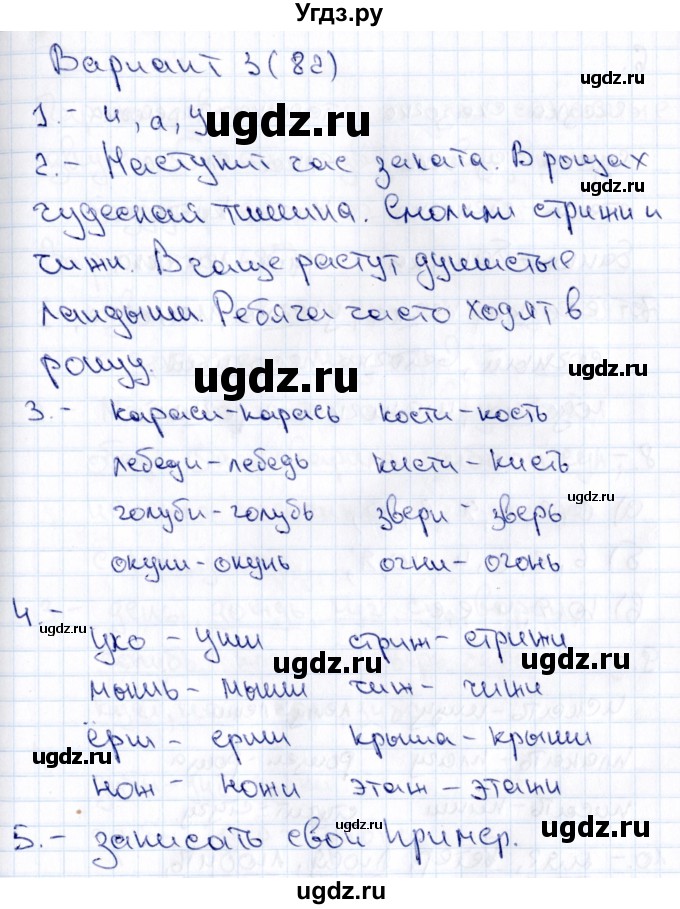 Угдз.ру
Вариант 3 (82)
ugdz.ru
1.- и, а, у
ugdz.ru
2.- Наступил час заката. В рощах
ugdz.ru
ugdz.ru
чудесная тишина. Смолкли стрижи и
чижи. В чаще растут душистые
ugdz.ru
ландыши. Ребята часто ходят в
рощу.
ugdz.ru
3.- караси-карась кости-кость
лебеди-лебедь кисти-кисть
ugdz.ru
голуби-голубь звери-зверь
окуни-окунь огни-огонь
4.-
ugdz.ru
ухо - уши стриж-стрижи
ugdz.ru
ugdz.ru
мышь-мыши чиж-чижи
ёрш - ерши крыша-крыши
нож - ножи этаж-этажи
5.- записать свой пример.
ugdz.ru
ugdz.ru
ugdz.ru